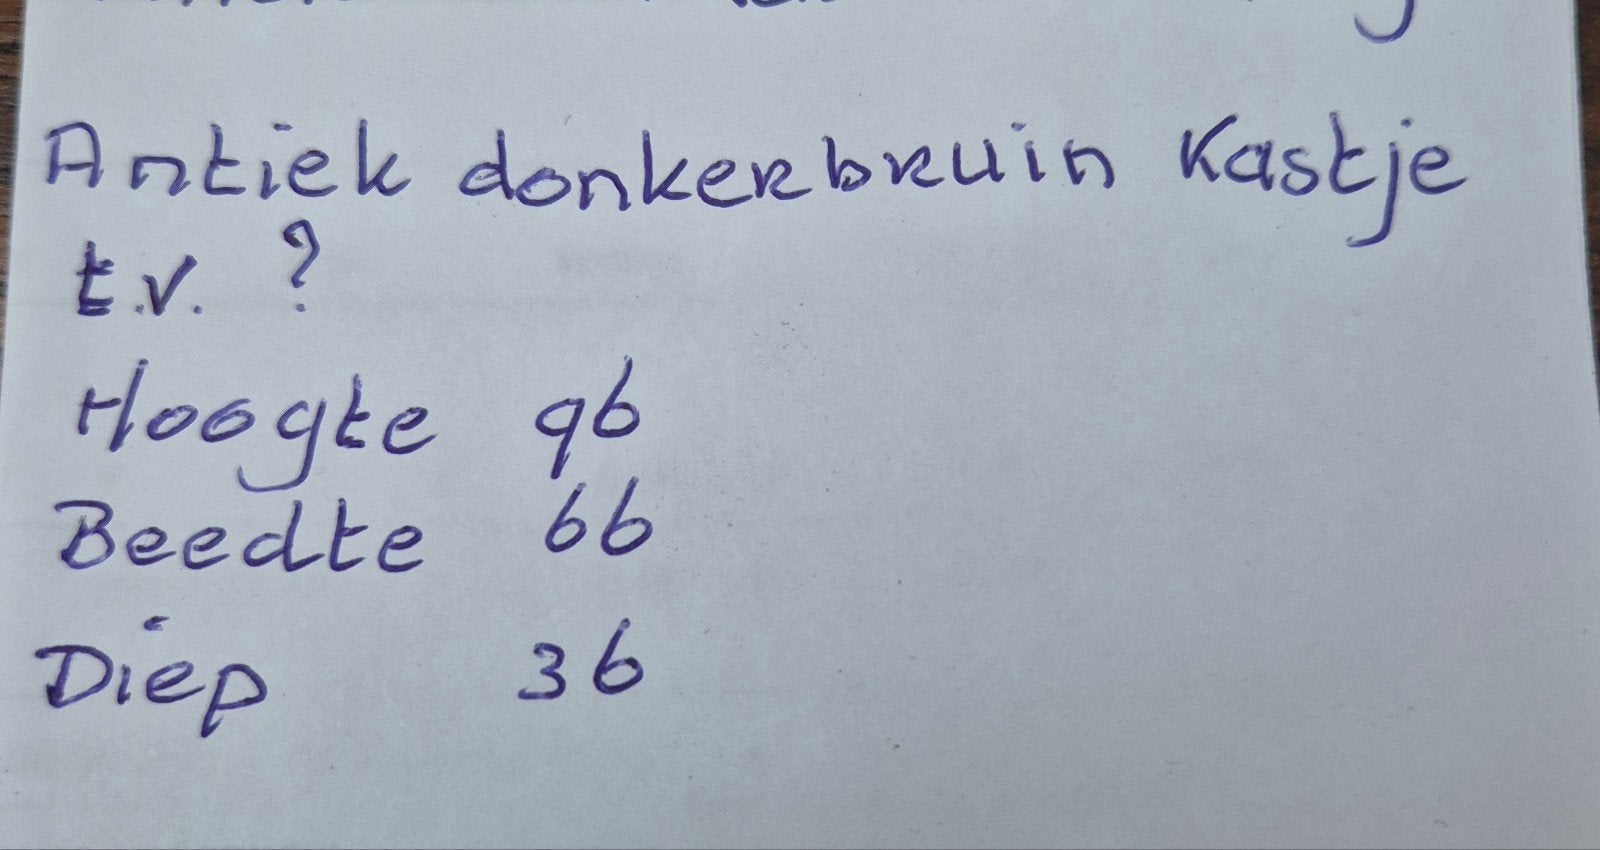 Antiek donkerbruin Kastje
t.v. ?
Hoogte 96
Beedte 66
Diep 36